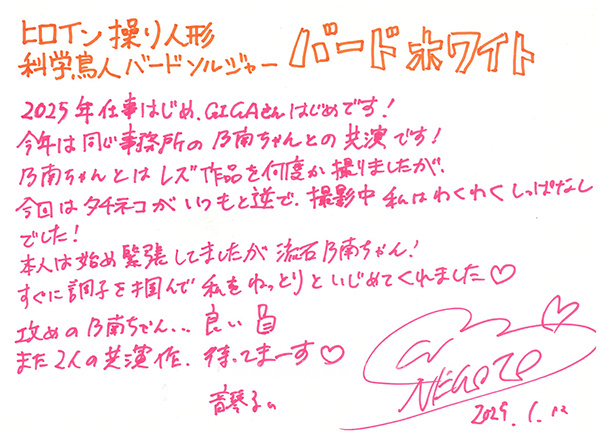 ヒロイン操り人形
科学鳥人バードソルジャー バードホワイト
2025年仕事はじめ、GIGAさんはじめです!
今年は同じ事務所の乃南ちゃんとの共演です!
乃南ちゃんとはレズ作品を何度か撮りましたが、
今回はタチネコがいつもと逆で、撮影中私はわくわくしっぱなし
でした!
本人は始め緊張してましたが流石乃南ちゃん!
すぐに調子を掴んで私をねっとりといじめてくれました♡
攻めの乃南ちゃん... 良い
また2人の共演作、待ってまーす♡
NEGOTO
2025.1.12